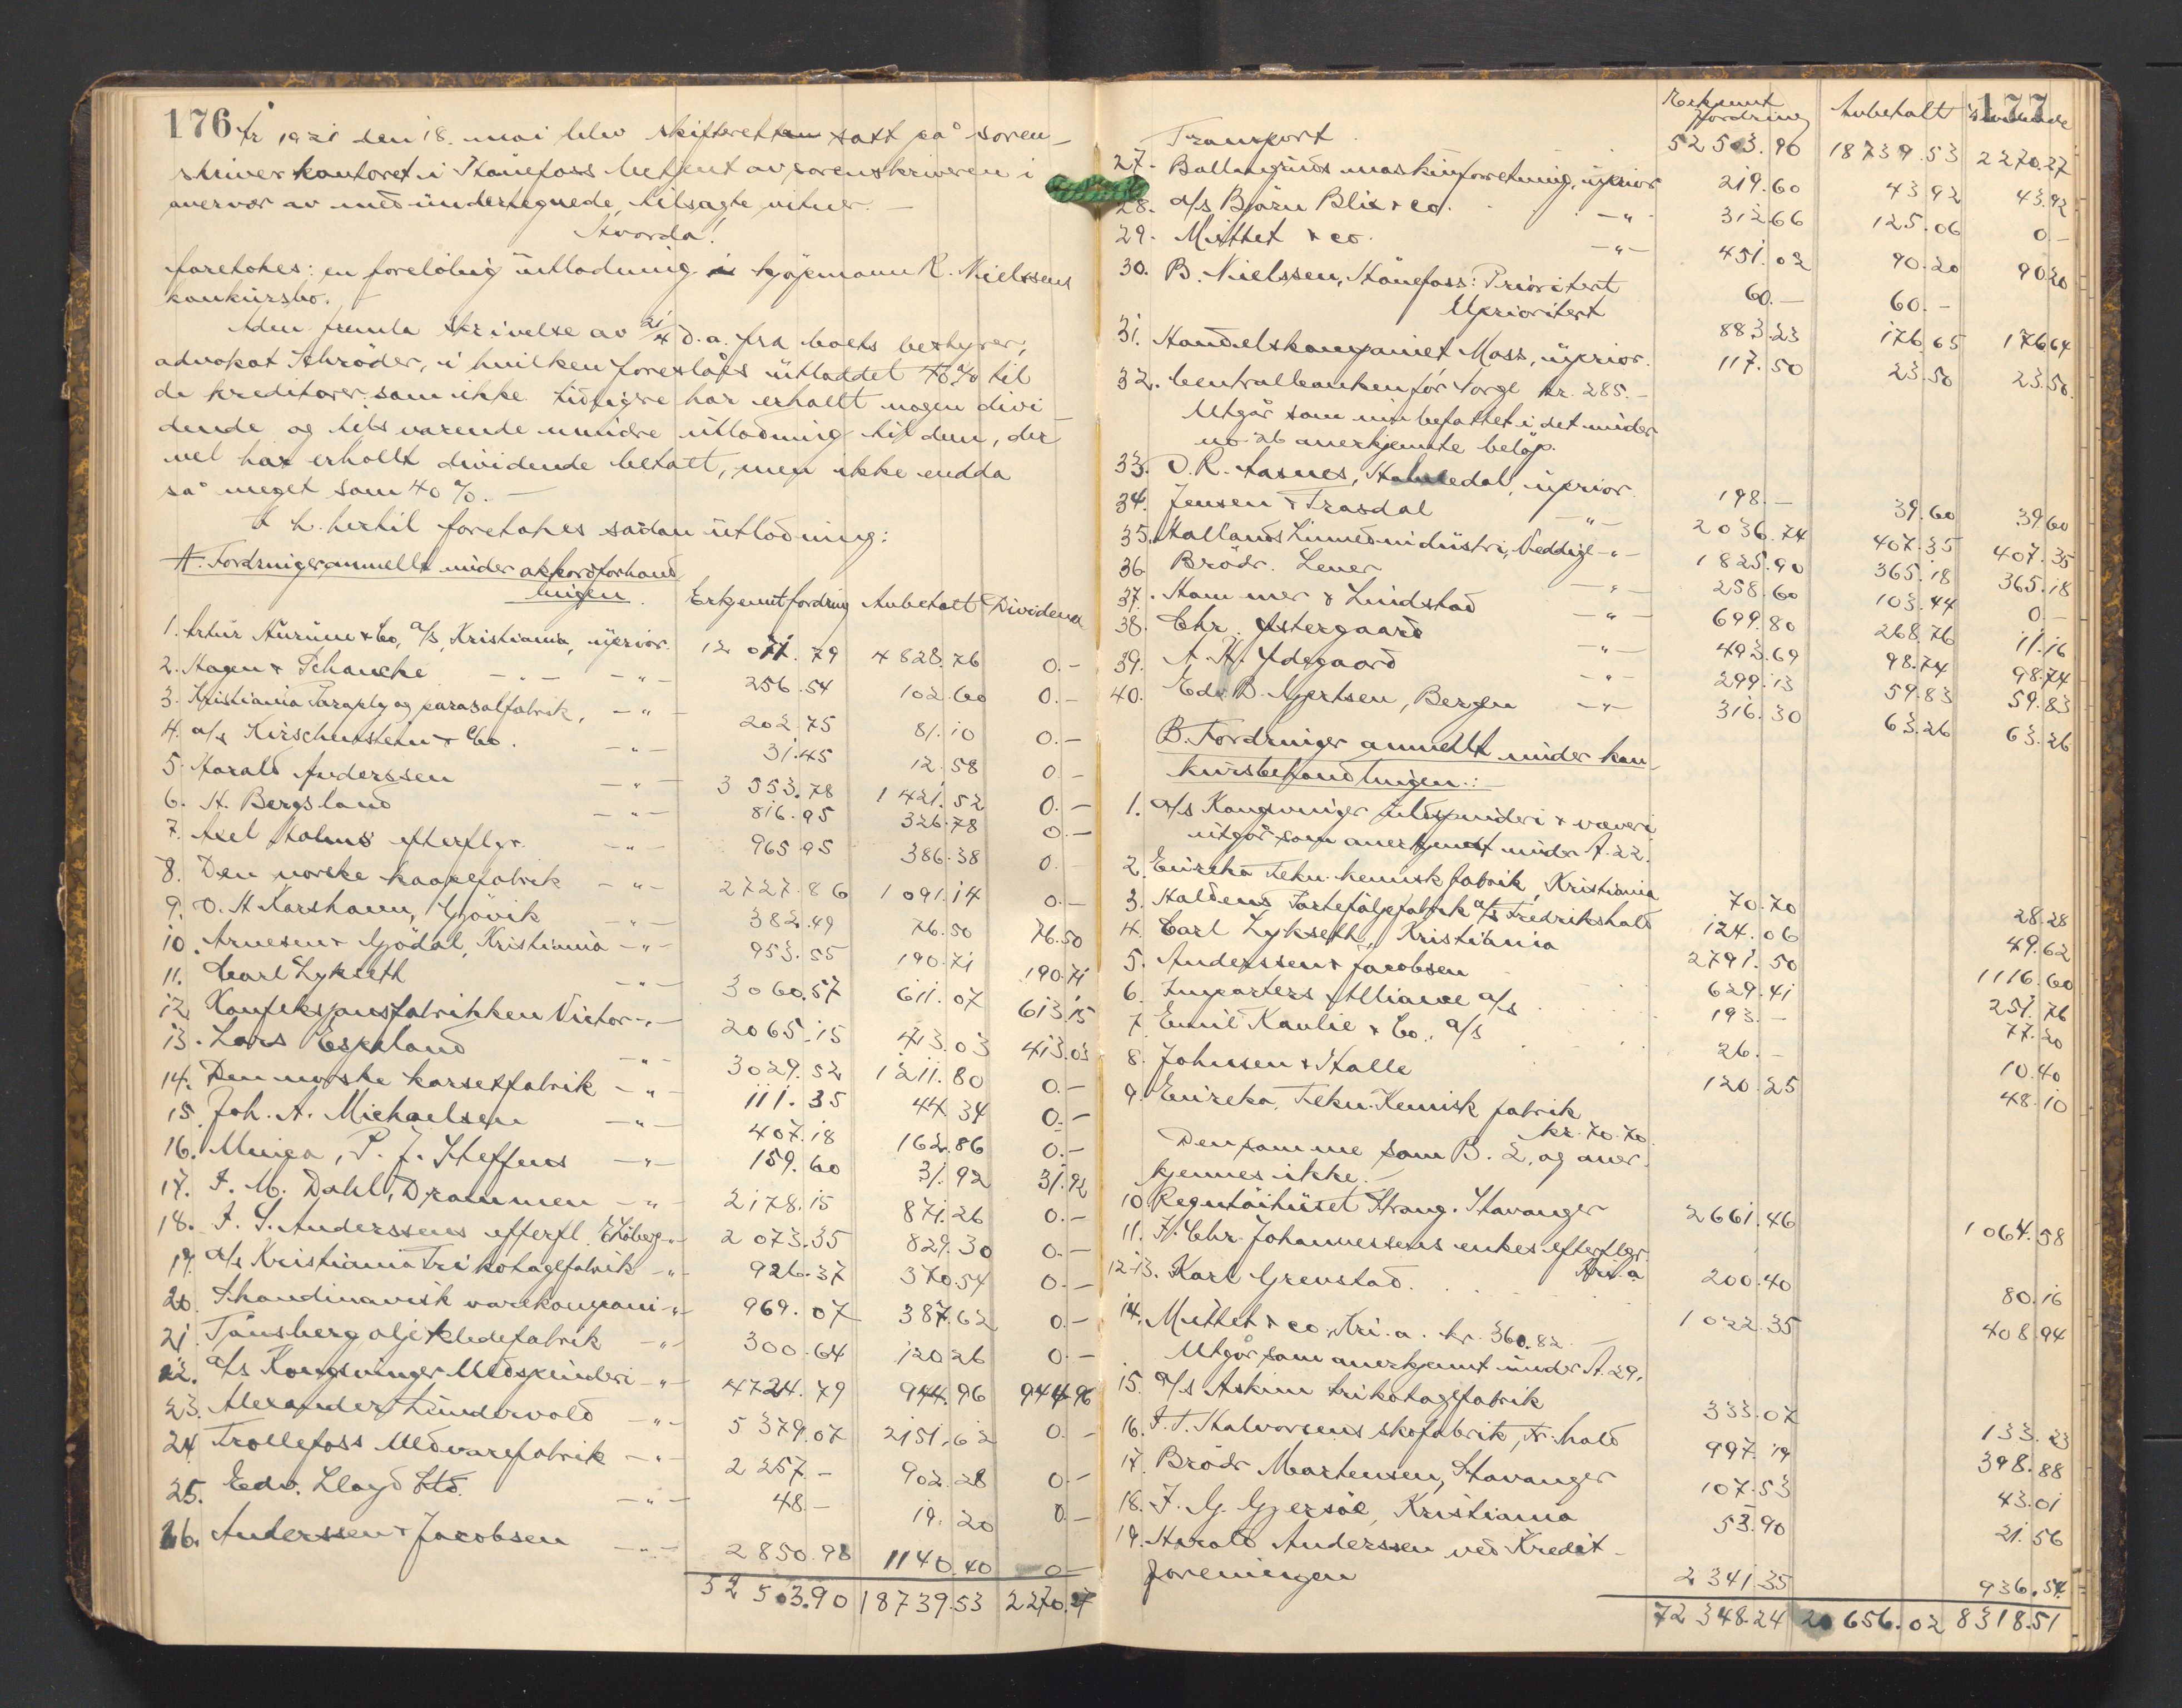 176
År 1921 den 18. mai blev skifteretten satt på soren-
skriverkontoret i Stönefoss betjent av sorenskriveren i
overvær av medundertegnede, tilsagte vitner. -
Hvorda!
foretokes: en foreløbig utlodning i kjøpmann R. Nielssens
konkursbo.
Den fremla skrivelse av 21/4 d.a. fra boets bestyrer,
advokat Schrøder, i hvilken foreslåes utloddet 40 % til
de kreditorer som ikke tidligere har erholdt nogen divi-
dende og tilsvarende mindre utlodning til dem, der
vel har erholdt dividende betalt, men ikke endda
så meget som 40 %. -
I h. hertil foretokes sådan utlodning:
A. Fordringer anmeldt under akkordforhand
lingen. Erkjent fordring Anbetalt Dividend
1. Artur Aurum & Co, a/s, Kristiania, uprior. 12 071.79 4828.76 0.-
2. Hagen & Schancke -"- -"- 256.54 102.60 0.-
3. Kristiania Paraply og parasolfabrik, -"- 202.75 81.10 0.-
4. a/s Kirschenstein & Co. -"- 31.45 12.58 0.-
5. Harald Anderssen -"- 3 553.78 1 421.52 0.-
6. H. Bergsland -"- 816.95 326.78 0.-
7. Axel Holms efterflgr. -"- 965.95 386.38 0.-
8. Den norske kaapefabrik -"- 2727.86 1 091.14 0.-
9. O. H. Karshavn, Gjövik -"- 382.49 76.50 76.50
10. Arnesen & Gjödal, Kristiania -"- 953.55 190.71 190.71
11. Carl Lykseth -"- 3 060.57 611.07 613.15
12. Konfeksjonsfabrikken Victor -"- 2065.15 413.03 413.03
13. Lars Espeland -"- 3029.52 1211.80 0.-
14. Den norske korsetfabrik -"- 111.35 44.34 0.-
15. Joh. A. Michaelsen -"- 407.18 162.86 0.-
16. Minga, P. J. Steffens -"- 159.60 31.92 31.92
17. I. M. Dahl, Drammen -"- 2178.15 871.26 0.-
18. I. S. Anderssens efterfl. E Köberg -"- 2 073.35 829.30 0.-
19. a/s Kristiania Trikotagefabrik -"- 926.37 370.54 0.-
20. Skandinavisk varekompani -"- 969.07 387.62 0.-
21. Tönsberg oljeklædefabrik -"- 300.64 120.26 0.-
22. a/s Kongsvinger Uldspinderi -"- 4724.79 944.96 944.96
23. Alexander Lundervold -"- 5 379.07 2151.62 0.-
24. Trollefoss Uldvarefabrik -"- 2 257.- 902.28 0.-
25. Edv. Lloyd Ltd. -"- 48.- 19.20 0.-
26. Anderssen & Jacobsen -"- 2850.98 1140.40 0.-
52 503.90 18739.53 2270.27
177
Erkjennt fordring Anbetalt Dividende
Transport 52 503.90 18739.53 2270.27
27. Ballangruds maskinforretning, uprior 219.60 43.92 43.92
28. a/s Björn Blix & co. -"- 312.66 125.06 0.-
29. Mittet & co. -"- 451.02 90.20 90.20
30. B. Nielssen, Hönefoss: Prioritert 60.- 60.-
Uprioritert 883.23 176.65 176.64
31. Handelskompaniet Moss, uprior. 117.50 23.50 23.50
32. Centralbanken for Norge kr. 285.-
Utgår som innbefattet i det under
no 26 anerkjennte beløp.
33. O. R. Aasnes, Hemsedal, uprior. 198.- 39.60 39.60
34. Jensen & Trasdal -"- 2036.74 407.35 407.35
35. Hallands Linnedindustri, Veddige -"- 1 825.90 365.18 365.18
36. Brödr. Lener -"- 258.60 103.44 0.-
37. Hammer & Lindstad -"- 699.80 268.76 11.16
38. Chr. Østergaard -"- 493.69 98.74 98.74
39. A. H. Ødegaard -"- 299.13 59.83 59.83
40. Edv. B. Gjertsen, Bergen -"- 316.30 63.26 63.26
B. Fordringer anmeldt under kon-
kursbehandlingen: -
1. a/s Kongsvinger uldspinderi & væveri
utgår som anerkjent under A. 22.
2. Eureka tekn. kemisk fabrik, Kristiania 70.70 28.28
3. Haldens Portefoljefabrik a/s Fredrikshald 124.06 49.62
4. Carl Lykseth, Kristiania 2791.50 1116.60
5. Anderssen & Jacobsen 629.41 251.76
6. Importers Alliance a/s 193.- 77.20
7. Emil Kaulie & Co., a/s 26.- 10.40
8. Johnsen & Halle 120.25 48.10
9. Eureka, Tekn. Kemisk fabrik
kr. 70.70.
Den samme som B. 2, og aner-
kjennes ikke. -
10. Regntöihuset Strong. Stavanger 2661.46 1064.58
11. H. Chr. Johannessens enkes efterflgr.
Kri.a 200.40 80.16
12-13. Karl Grenstad. 1 022.35 408.94
14. Mittet & co. Kri.a. kr. 360.82. -
Utgår som anerkjennt under A. 29.
15. a/s Askim trikotagefabrik 333.07 133.23
16. I. T. Halvorsens skofabrik, Fr.hald 997.19 398.88
17. Brödr Martensen, Stavanger 107.53 43.01
18. F. G. Gjersöe, Kristiania 53.90 21.56
19. Harald Anderssen ved Kredit-
foreningen 2 341.35 936.54
72 348.24 20 656.02 8318.51